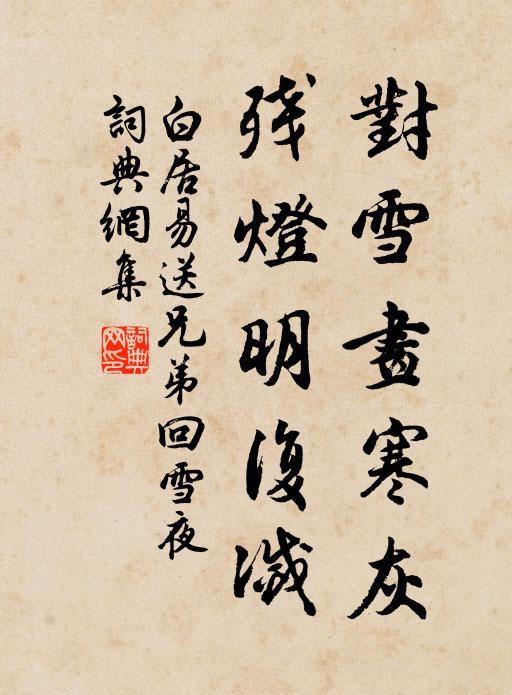 對雪畫寒灰
残燈明復滅
白居易送兄弟回雪夜
詞典網集
詞典网印